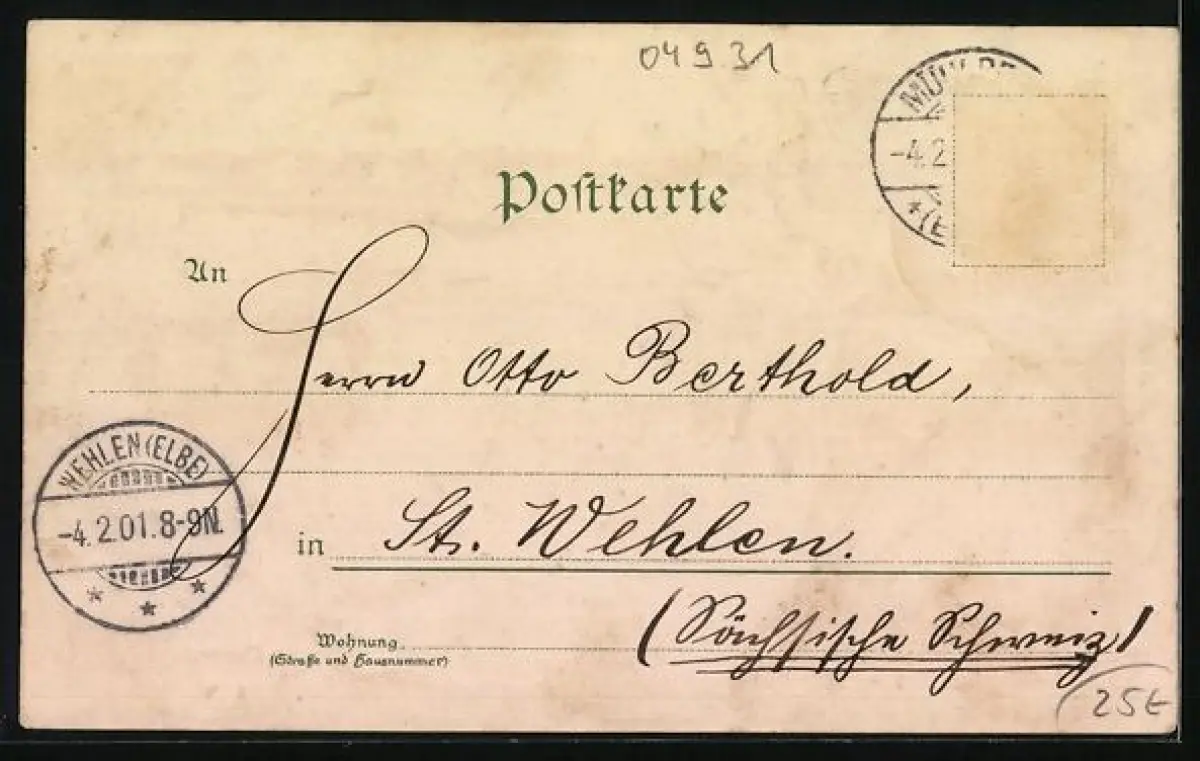 04931
Postkarte
-4.2
An
Herrn Otto Berthold,
WEHLEN (ELBE)
-4.2.01.8-9N.
in St. Wehlen.
(Sächsische Schweiz)
Wohnung
(Straße und Hausnummer)
25t